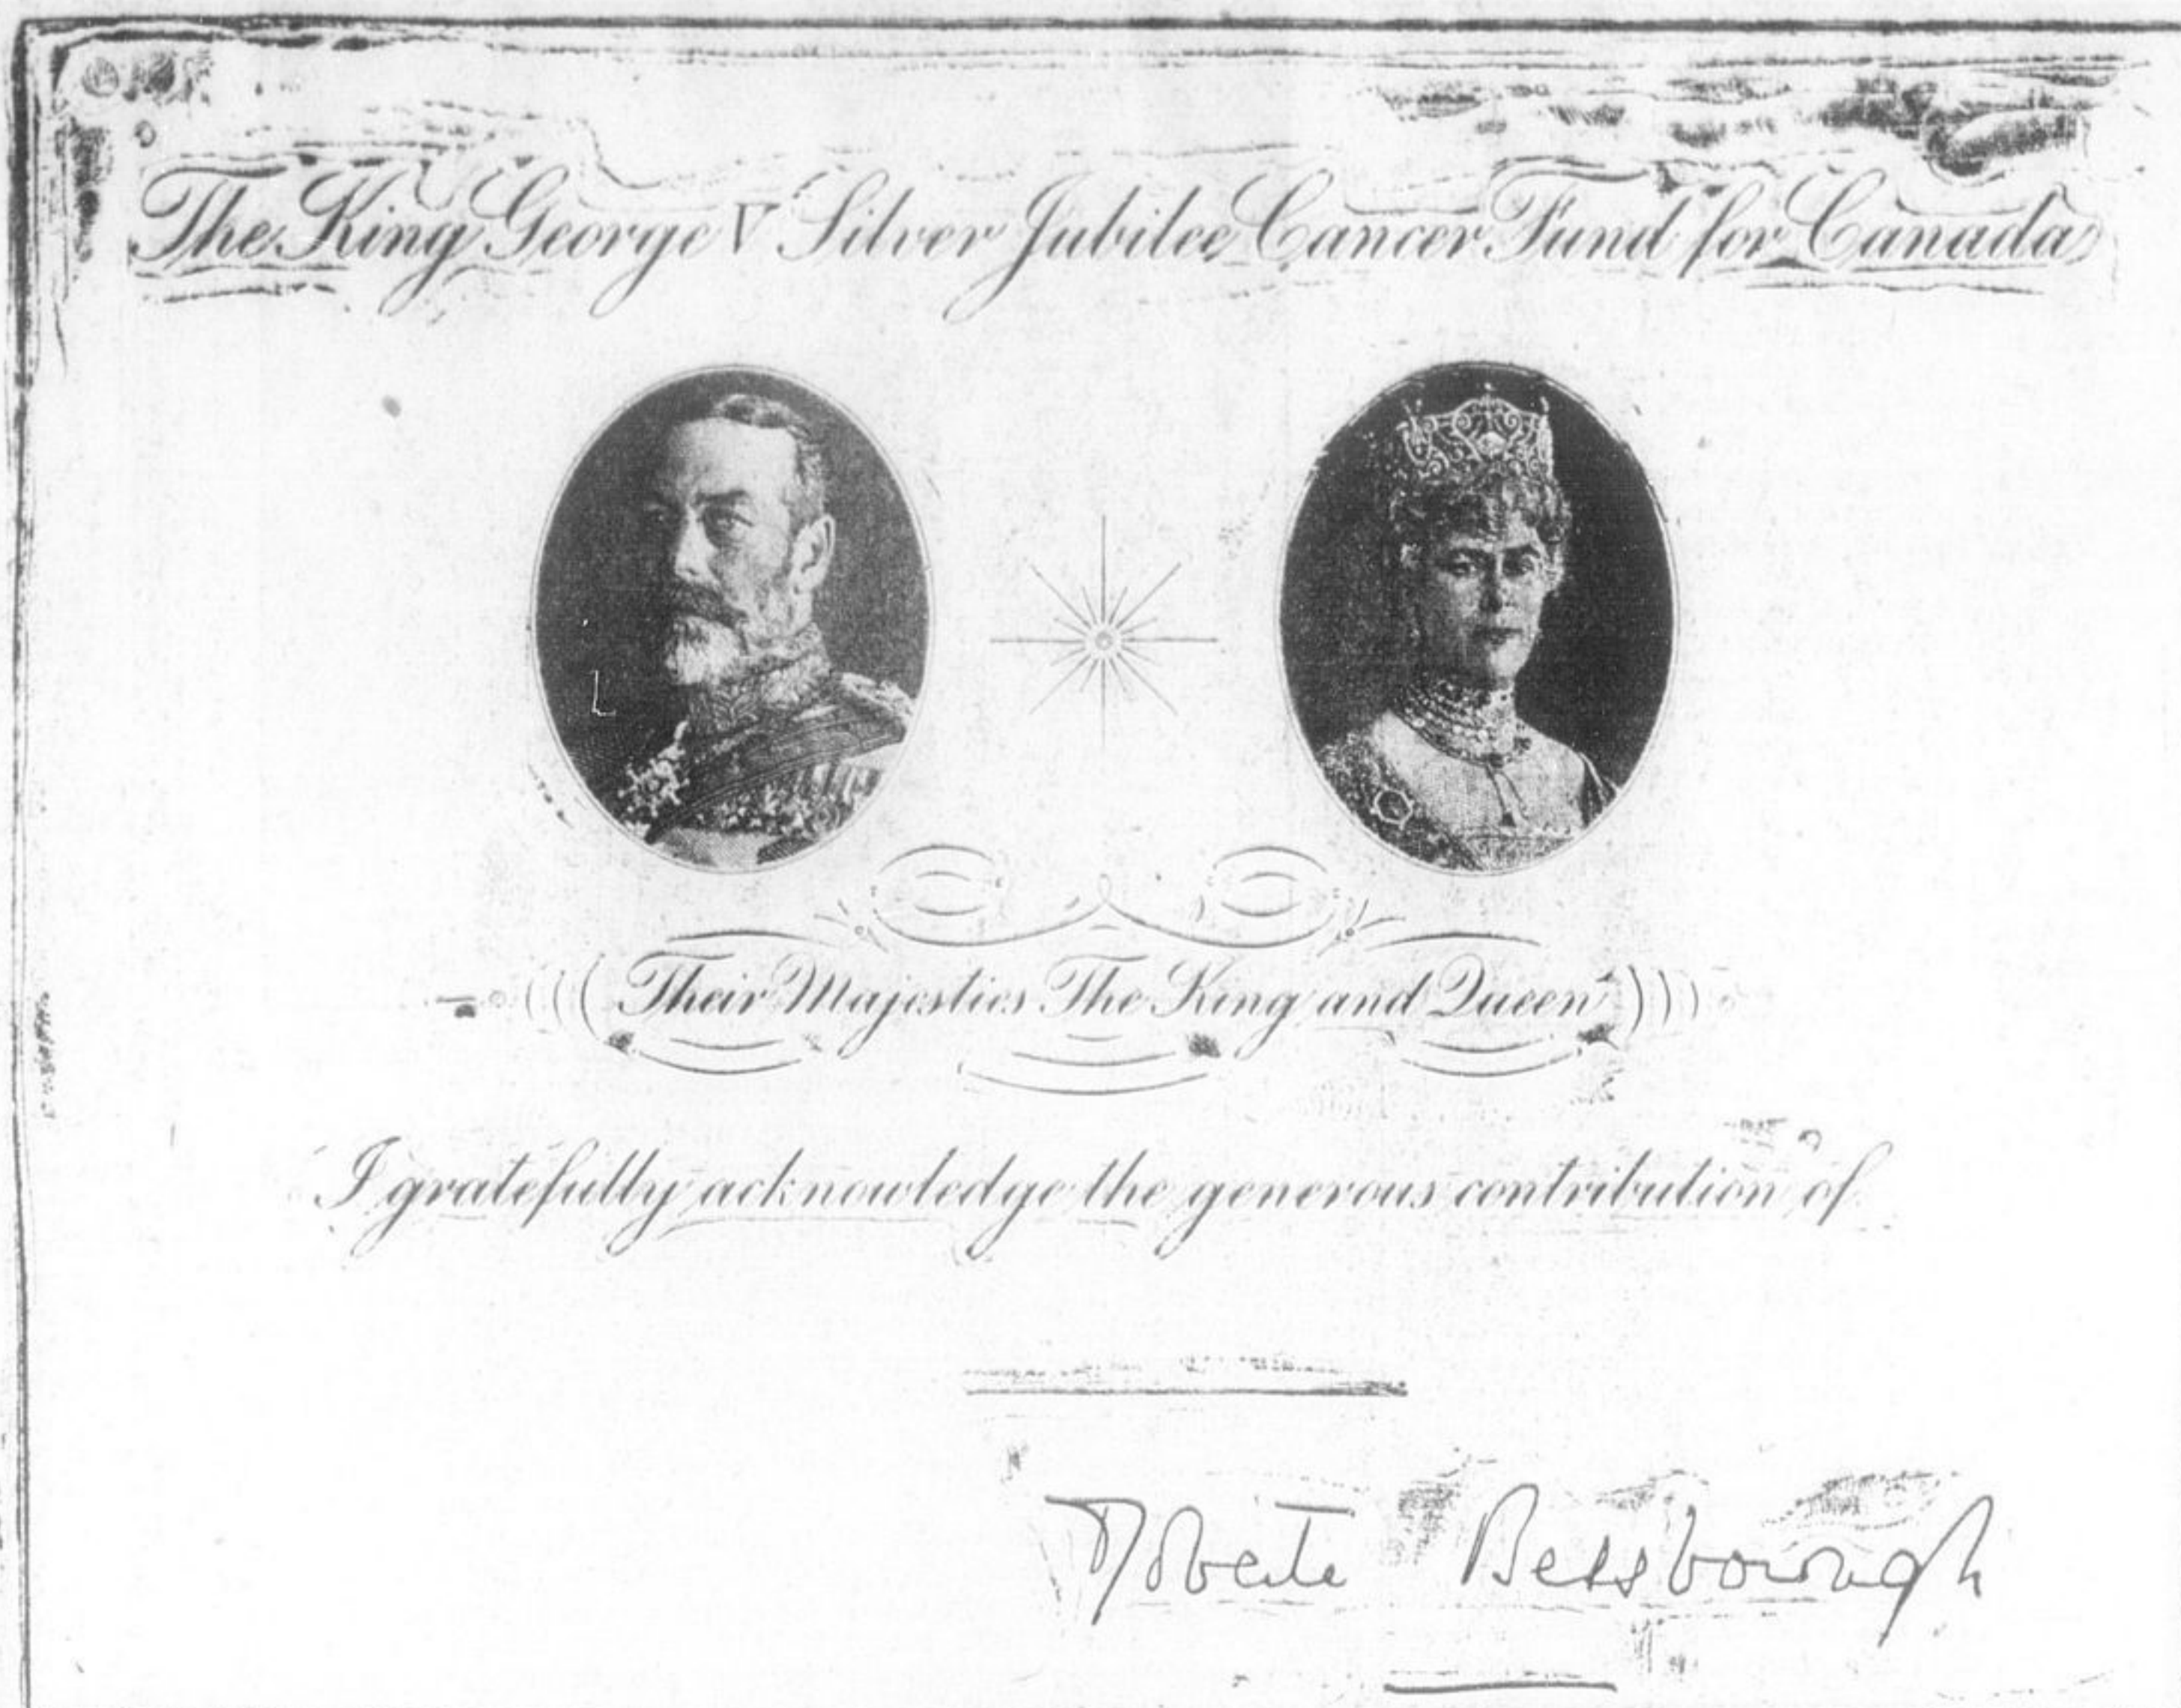 The King George V Silver Jubilee Cancer Fund for Canada
Their Majesties The King and Queen
I gratefully acknowledge the generous contribution of
Roberte Bessborough